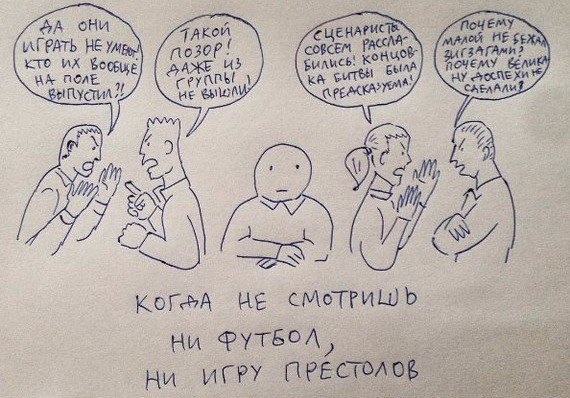 ДА ОНИ
ИГРАТЬ НЕ УМЕЮТ!
КТО ИХ ВООБЩЕ
НА ПОЛЕ
ВЫПУСТИЛ?!
ТАКОЙ
ПОЗОР!
ДАЖЕ ИЗ
ГРУППЫ
НЕ ВЫШЛИ!
СЦЕНАРИСТЫ
СОВСЕМ РАССЛА-
БИЛИСЬ! КОНЦОВ-
КА БИТВЫ БЫЛА
ПРЕДСКАЗУЕМА!
ПОЧЕМУ
МАЛОЙ НЕ БЕЖАЛ
ЗИГЗАГАМИ?
ПОЧЕМУ ВЕЛИКА
НУ ДОСПЕХИ НЕ
СДЕЛАЛИ?
КОГДА НЕ СМОТРИШЬ
НИ ФУТБОЛ,
НИ ИГРУ ПРЕСТОЛОВ